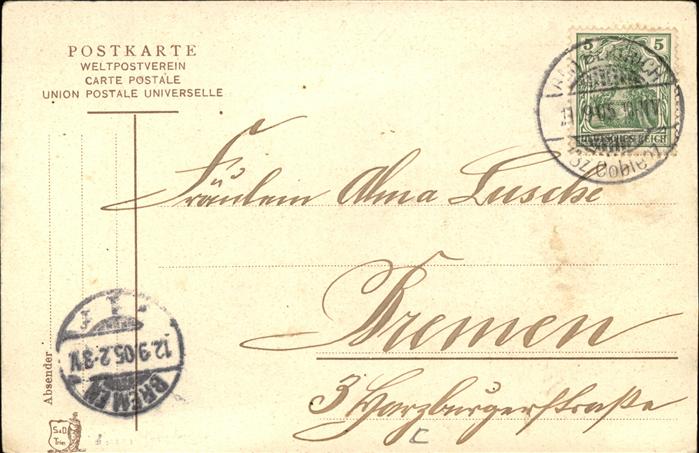 POSTKARTE
WELTPOSTVEREIN
CARTE POSTALE
UNION POSTALE UNIVERSELLE
5 5
DEUTSCHES REICH
BERTRICH
11 9 05
Fräulein Alma Lusche
Bremen
3 Harzburgerstraße
Absender
12.9.05.2-3V.
BREMEN
S&D